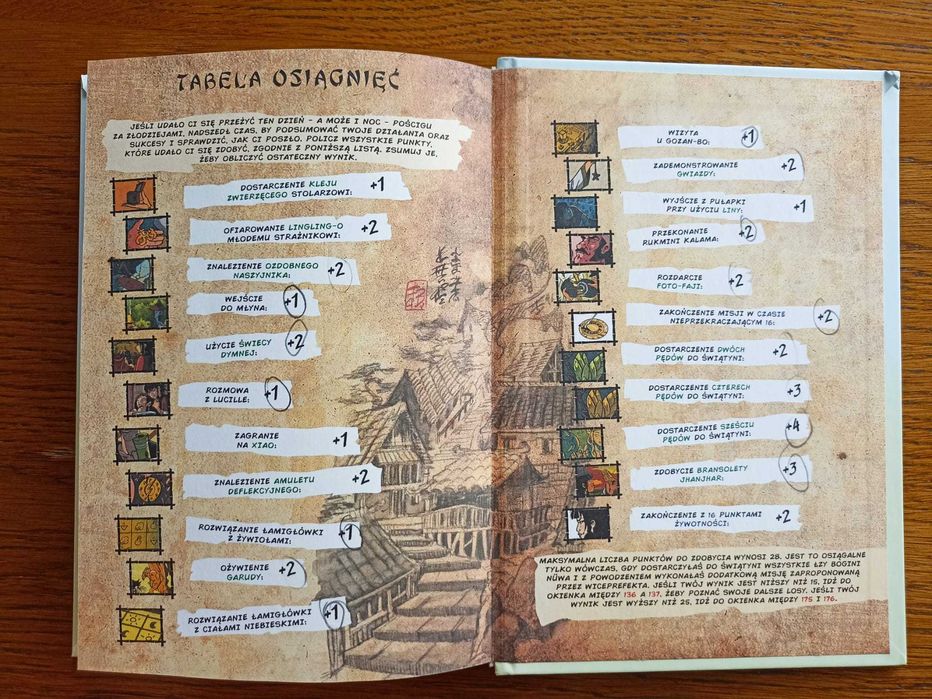 TABELA OSIĄGNIĘĆ
JEŚLI UDAŁO CI SIĘ PRZEŻYĆ TEN DZIEŃ - A MOŻE I NOC - POŚCIGU
ZA ZŁODZIEJAMI, NADSZEDŁ CZAS, BY PODSUMOWAĆ TWOJE DZIAŁANIA ORAZ
SUKCESY I SPRAWDZIĆ, JAK CI POSZŁO. POLICZ WSZYSTKIE PUNKTY,
KTÓRE UDAŁO CI SIĘ ZDOBYĆ, ZGODNIE Z PONIŻSZĄ LISTĄ. ZSUMUJ JE,
ŻEBY OBLICZYĆ OSTATECZNY WYNIK.
DOSTARCZENIE KLEJU
ZWIERZĘCEGO STOLARZOWI: +1
OFIAROWANIE LINGLING-O
MŁODEMU STRAŻNIKOWI: +2
ZNALEZIENIE OZDOBNEGO
NASZYJNIKA: +2
WEJŚCIE
DO MŁYNA: +1
UŻYCIE ŚWIECY
DYMNEJ: +2
ROZMOWA
Z LUCILLE: +1
ZAGRANIE
NA XIAO: +1
ZNALEZIENIE AMULETU
DEFLEKCYJNEGO: +2
ROZWIĄZANIE ŁAMIGŁÓWKI
Z ŻYWIOŁAMI: +1
OŻYWIENIE
GARUDY: +2
ROZWIĄZANIE ŁAMIGŁÓWKI
Z CIAŁAMI NIEBIESKIMI: +1
WIZYTA
U GOZAN-BO: +1
ZADEMONSTROWANIE
GWIAZDY: +2
WYJŚCIE Z PUŁAPKI
PRZY UŻYCIU LINY: +1
PRZEKONANIE
RUKMINI KALAMA: +2
ROZDARCIE
FOTO-FAJI: +2
ZAKOŃCZENIE MISJI W CZASIE
NIEPRZEKRACZAJĄCYM 16: +2
DOSTARCZENIE DWÓCH
PĘDÓW DO ŚWIĄTYNI: +2
DOSTARCZENIE CZTERECH
PĘDÓW DO ŚWIĄTYNI: +3
DOSTARCZENIE SZEŚCIU
PĘDÓW DO ŚWIĄTYNI: +4
ZDOBYCIE BRANSOLETY
JHANJHAR: +3
ZAKOŃCZENIE Z 16 PUNKTAMI
ŻYWOTNOŚCI: +2
MAKSYMALNA LICZBA PUNKTÓW DO ZDOBYCIA WYNOSI 28. JEST TO OSIĄGALNE
TYLKO WÓWCZAS, GDY DOSTARCZYŁAŚ DO ŚWIĄTYNI WSZYSTKIE ŁZY BOGINI
NÜWA I Z POWODZENIEM WYKONAŁAŚ DODATKOWĄ MISJĘ ZAPROPONOWANĄ
PRZEZ WICEPREFEKTA. JEŚLI TWÓJ WYNIK JEST NIŻSZY NIŻ 15, IDŹ DO
OKIENKA MIĘDZY 136 A 137, ŻEBY POZNAĆ SWOJE DALSZE LOSY. JEŚLI TWÓJ
WYNIK JEST WYŻSZY NIŻ 25, IDŹ DO OKIENKA MIĘDZY 175 I 176.